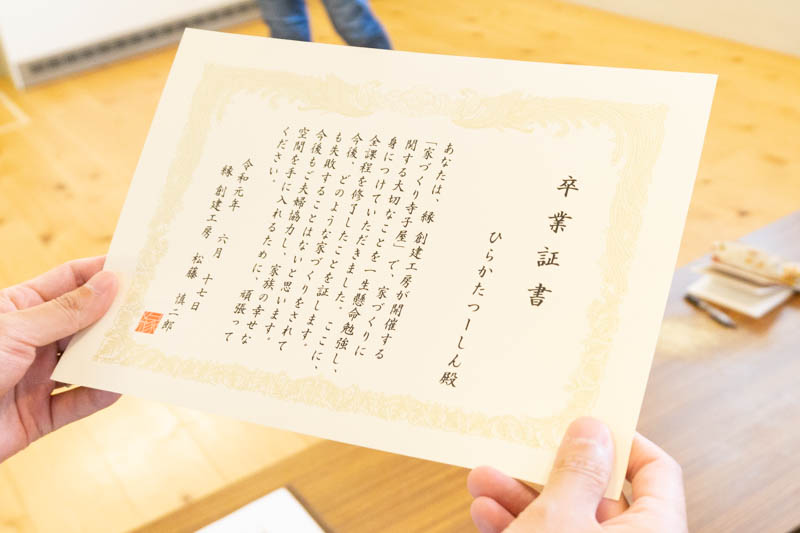 卒業証書
ひらかたつーしん殿
あなたは、縁 創建工房が開催する
「家づくり寺子屋」で、家づくりに
関する大切なことを一生懸命勉強し、
身につけていただきました。ここに、
全課程を修了したことを証します。
今後、どのような家づくりをされて
も失敗することはないと思います。
今後もご夫婦協力し、家族の幸せな
空間を手に入れるために、頑張って
ください。
令和元年 六月 十七日
縁 創建工房 松藤 慎二郎